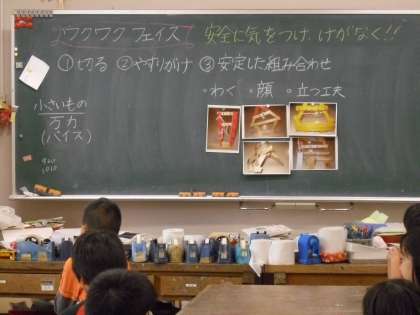 ワクワクフェイス 安全に気をつけ、けがなく!!
①切る ②やすりがけ ③安定した組み合わせ
・わく ・顔 ・立つ工夫
小さいもの
万力
(バイス)